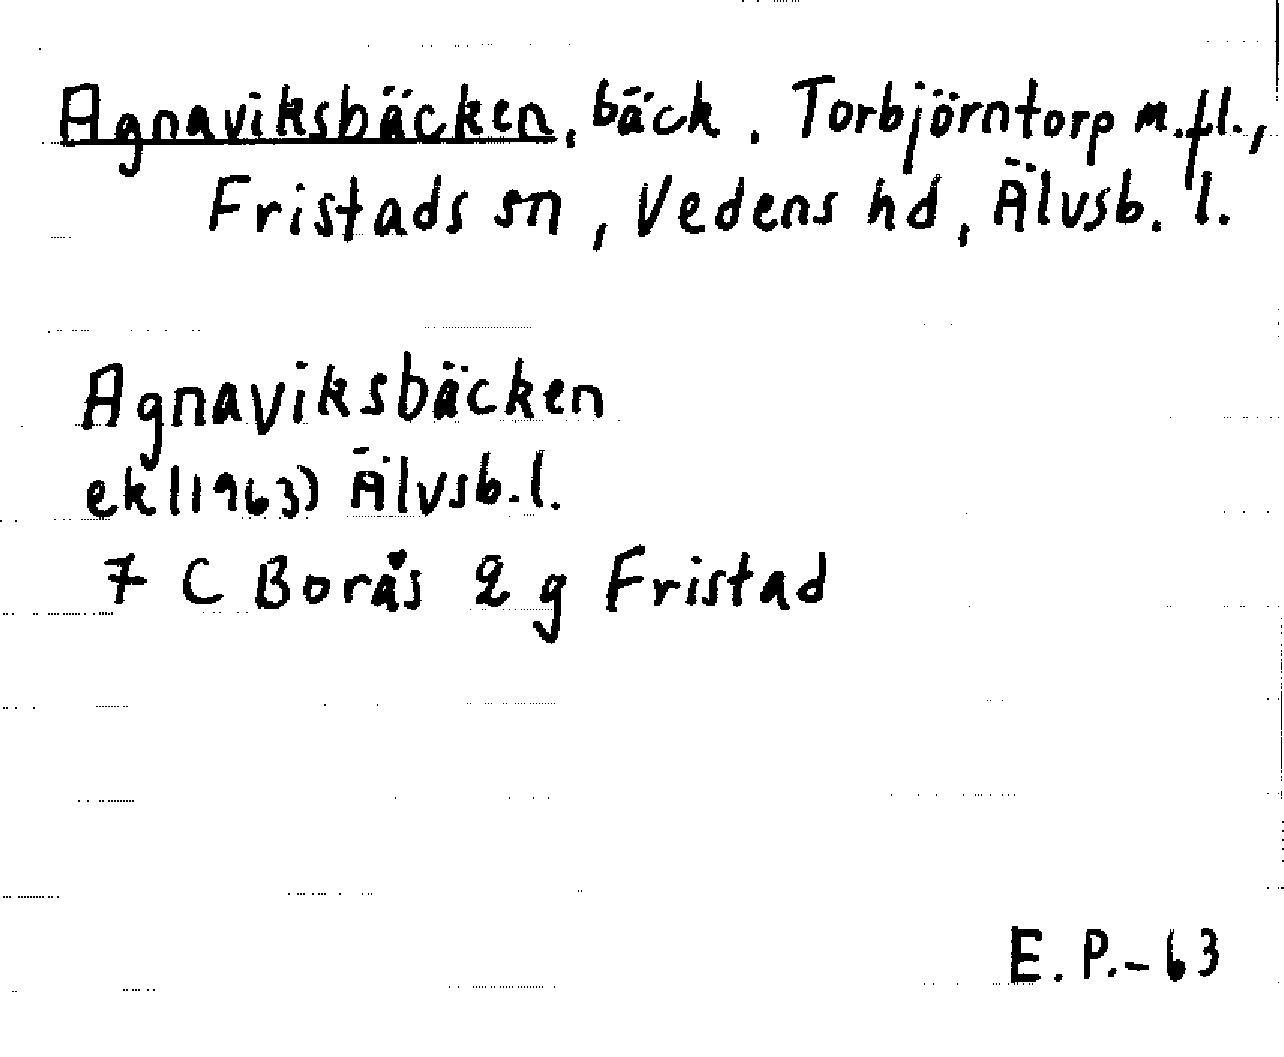 Agnaviksbäcken, bäck, Torbjörntorp m.fl.,
Fristads sn, Vedens hd, Älvsb. l.
Agnaviksbäcken
ek (1963) Älvsb. l.
7 C Borås 2 g Fristad
E. P. - 63